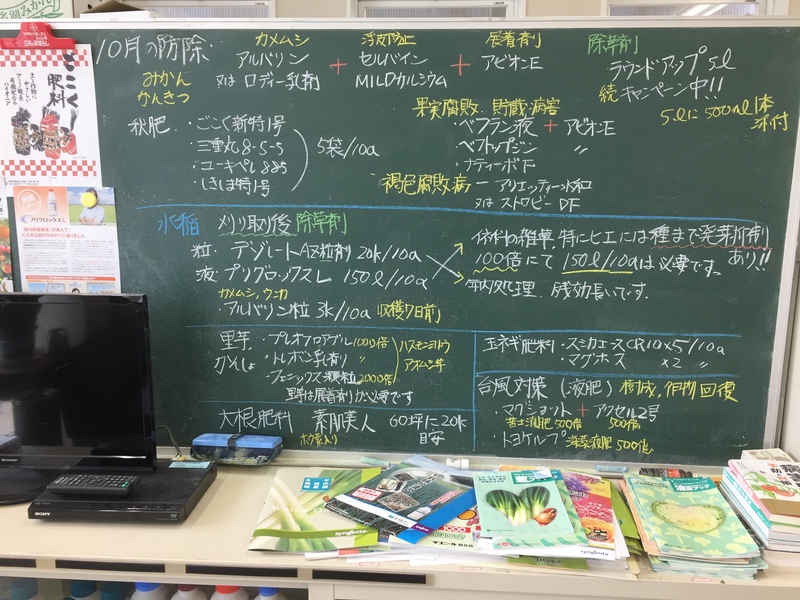 10月の防除
みかん
かんきつ
カメムシ
アルバリン
又は ロディー乳剤
+
浮皮防止
セルバイン
MILDカルシウム
+
展着剤
アビオンE
除草剤
ラウンドアップ5l
続 キャンペーン中!!
5lに500ml 1本
添付
秋肥
・ごこく新特1号
・三重丸8-5-5
・ユーキペレ885
・しきしま特1号
5袋/10a
果実腐敗、貯蔵病害
・ベフラン液 + アビオンE
・ベストップジン 〃
・ナティーボF
褐色腐敗病 ー アリエッティー水和
又は ストロビーDF
水稲 刈り取後 除草剤
粒: デゾレートAZ粒剤 20k/10a
液: プリグロックスL 150l/10a
カメムシ、ウンカ
・アルバリン粒 3k/10a 収穫7日前
イネ科の雑草、特にヒエには種まで発芽抑制
あり!!
100倍にて 150l/10aは必要です。
年内処理、残効長いです。
里芋
かんしょ
・プレオフロアブル1000倍
・トレボン乳剤 〃
・フェニックス顆粒 2000倍
ハスモンヨトウ
アオムシ等
里芋は展着剤が必要です
大根肥料 素肌美人 60坪に20k
ホウ素入り
目安
玉ネギ肥料・スミカエースCR10×5/10a
・マグホス ×2 〃
台風対策(液肥) 樹成、作物回復
・マグショット + アクセル2号
苦土液肥500倍 500倍
・トヨケルプ 海藻液肥500倍
ごこく
肥料
プリグロックスL
SONY
syngenta